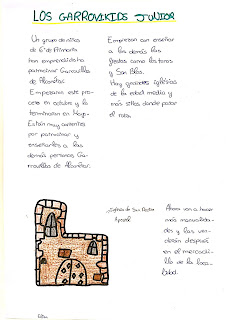 LOS GARROVIKIDS JUNIOR
Un grupo de niños
de 6º de Primaria
han emprendido ha
patrocinar Garrovillas
de Alconétar.
Empezaron este pro-
ceto en octubre y la
terminaron en Mayo.
Están muy contentos
por patrocinar y
enseñarles a las
demás personas Ga-
rrovillas de Alconétar.
Empiezan con enseñar
a los demás las
fiestas como los toros
y San Blas.
Hay grandes iglésias
de la edad media y
más sitios donde pasar
el rato.
Iglesia de San Pedro
Apostol
Ahora van a hacer
más manualida-
des y las ven-
derán después
en el mercadi-
llo de la loca-
lidad.